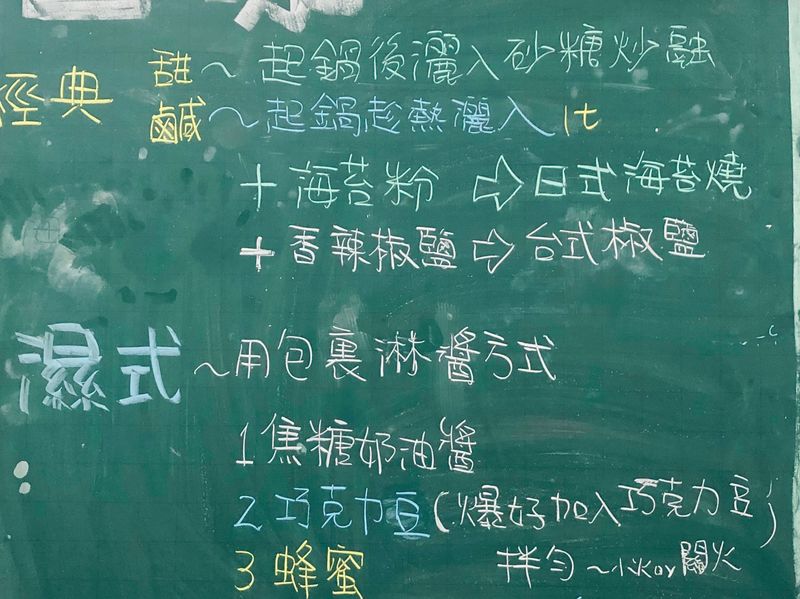 經典 甜～起鍋後灑入砂糖炒融
鹹～起鍋趁熱灑入 1t
+ 海苔粉 ⇨ 日式海苔燒
+ 香辣椒鹽 ⇨ 台式椒鹽
濕式～用包裹淋醬方式
1 焦糖奶油醬
2 巧克力豆(爆好加入巧克力豆)
3 蜂蜜 拌勻～小火or關火